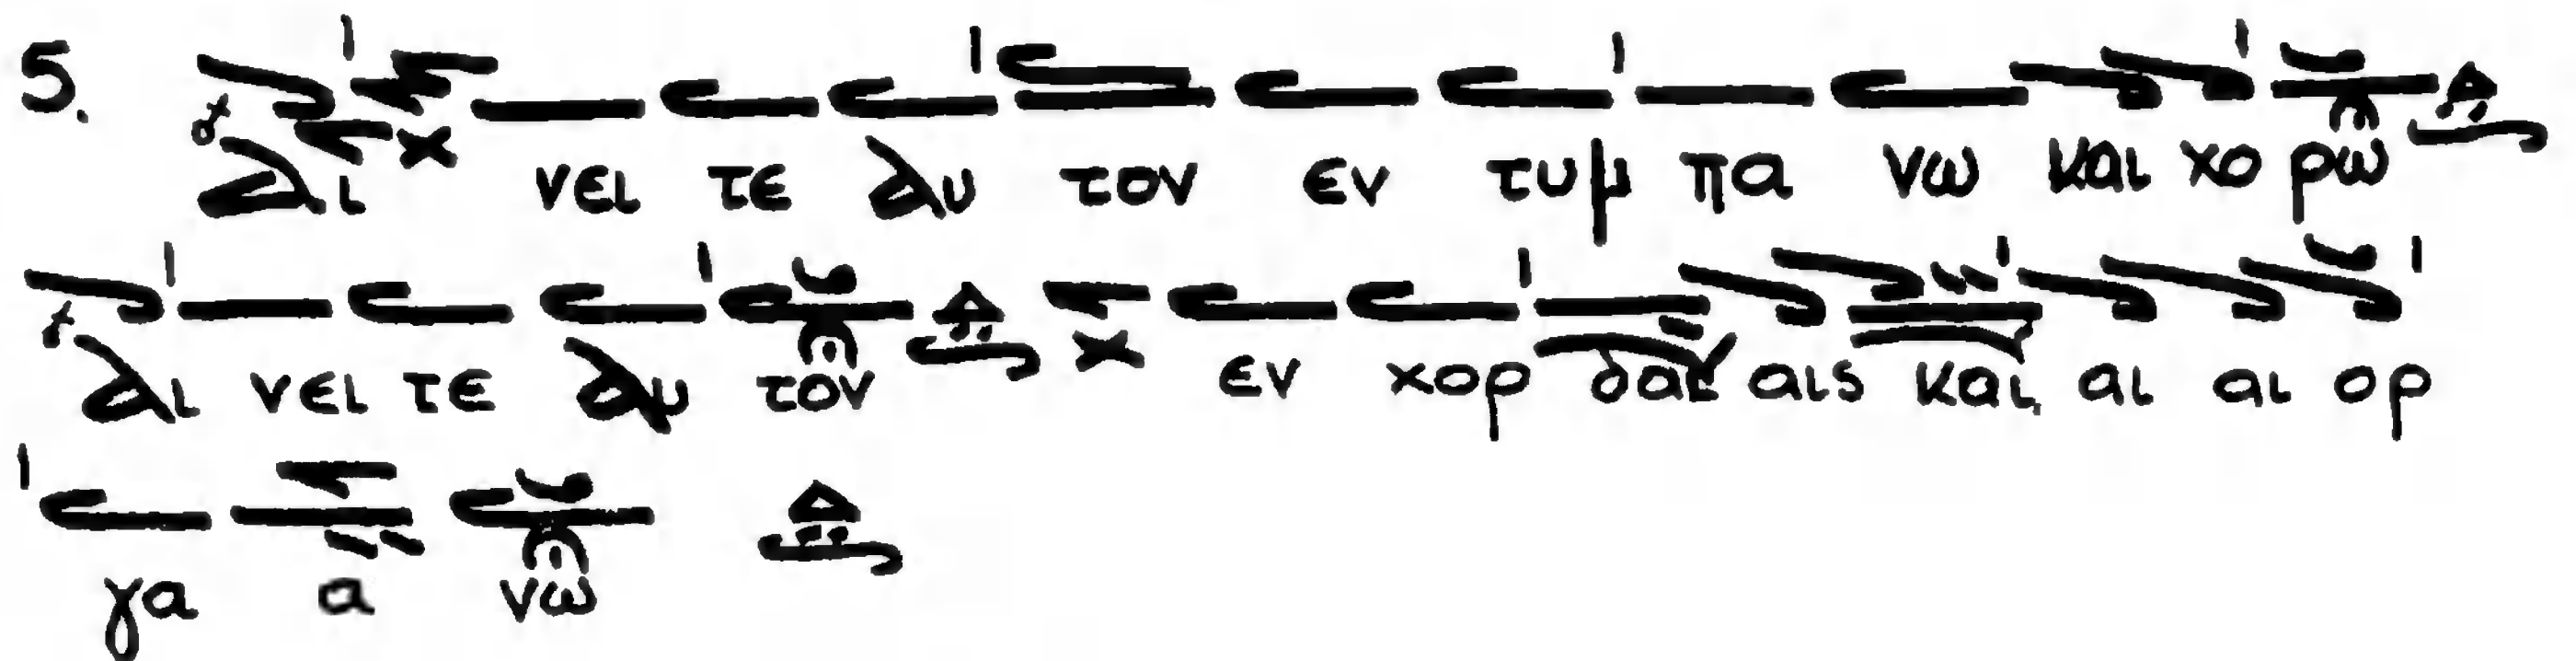 5. Αι νει τε Αυ τον εν τυμ πα νω και χο ρω
Αι νει τε Αυ τον εν χορ δαι αις και αι αι ορ
γα α νω